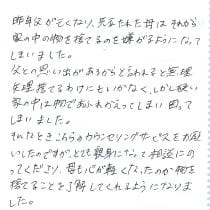 昨年父が亡くなり、残された母はそれから
家の中の物を捨てるのを嫌がるようになって
しまいました。
父との思い出があるからと言われると無理
矢理捨てるわけにもいかなく、しかし狭い
家の中は物であふれかえってしまい困って
しまいました。
そんなときこちらのカウンセリングサービスをお願
いしたのですが、とても親身になって相談にの
ってくださり、母も心が軽くなったのか物を
捨てることを了解してくれるようになりま
した。